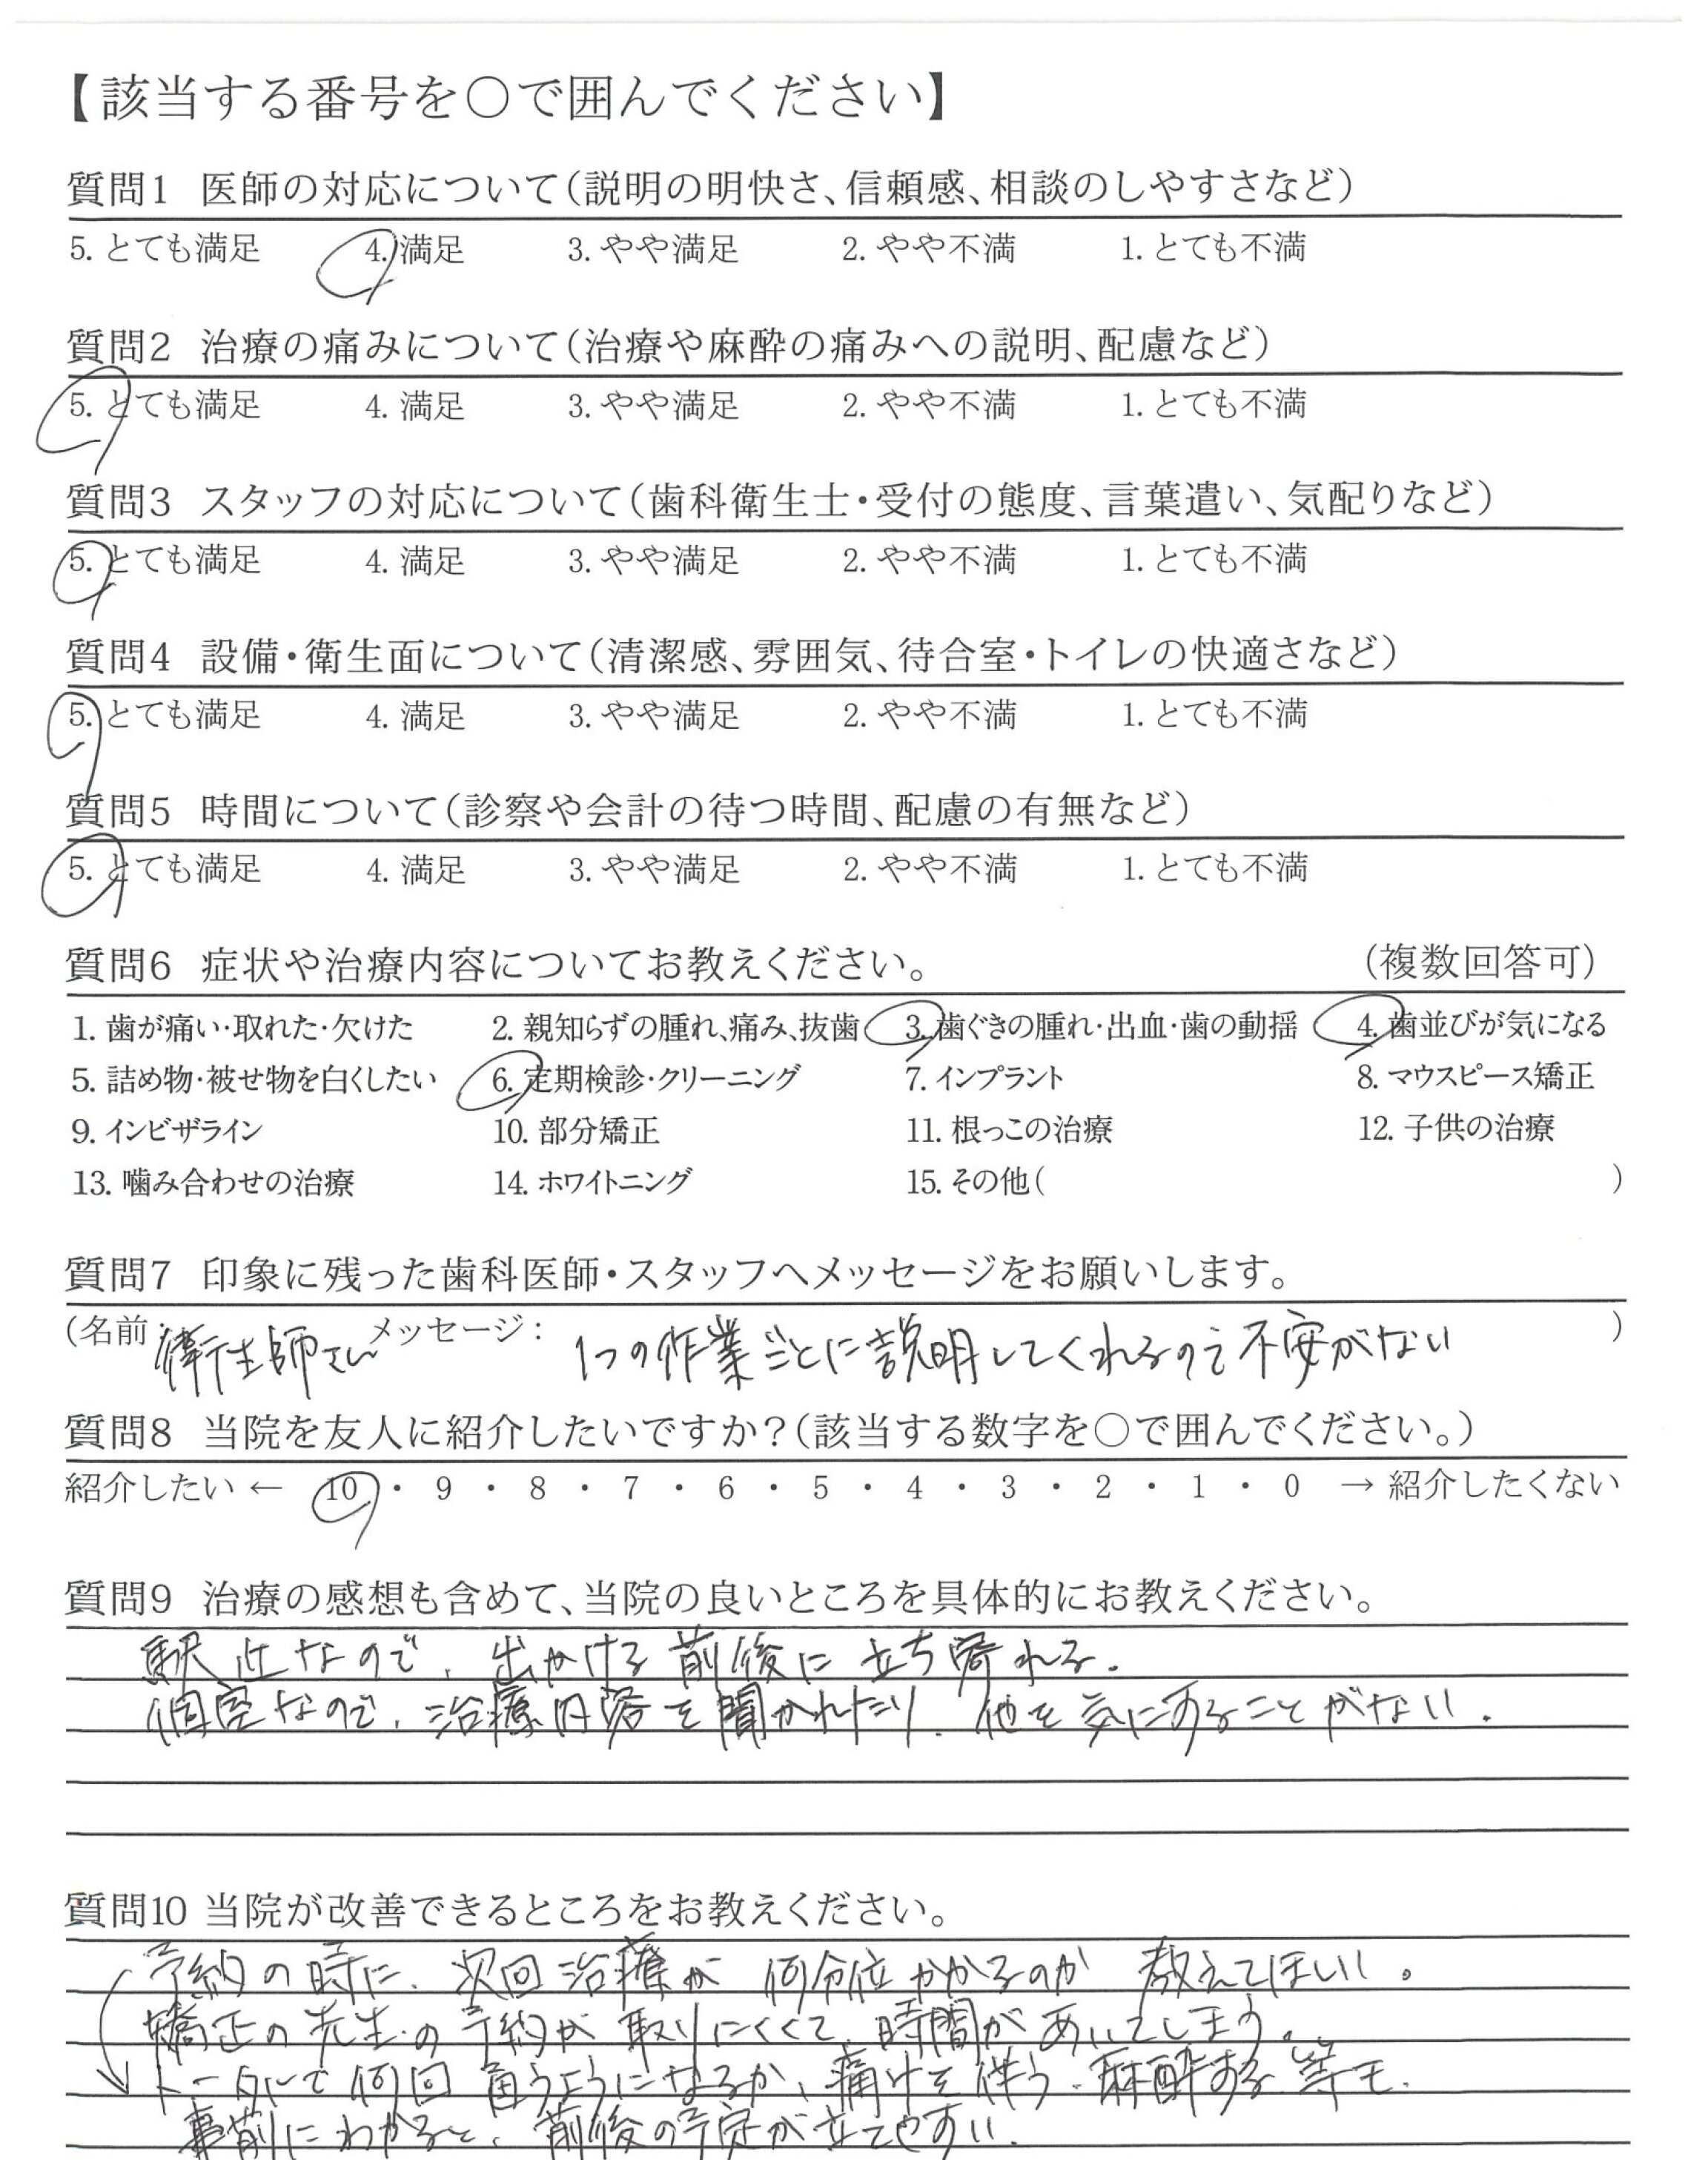 【該当する番号を〇で囲んでください】
質問1 医師の対応について(説明の明快さ、信頼感、相談のしやすさなど)
5. とても満足 4. 満足 3. やや満足 2. やや不満 1. とても不満
質問2 治療の痛みについて(治療や麻酔の痛みへの説明、配慮など)
5. とても満足 4. 満足 3. やや満足 2. やや不満 1. とても不満
質問3 スタッフの対応について(歯科衛生士・受付の態度、言葉遣い、気配りなど)
5. とても満足 4. 満足 3. やや満足 2. やや不満 1. とても不満
質問4 設備・衛生面について(清潔感、雰囲気、待合室・トイレの快適さなど)
5. とても満足 4. 満足 3. やや満足 2. やや不満 1. とても不満
質問5 時間について(診察や会計の待つ時間、配慮の有無など)
5. とても満足 4. 満足 3. やや満足 2. やや不満 1. とても不満
質問6 症状や治療内容についてお教えください。 (複数回答可)
1. 歯が痛い・取れた・欠けた 2. 親知らずの腫れ、痛み、抜歯 3. 歯ぐきの腫れ・出血・歯の動揺 4. 歯並びが気になる
5. 詰め物・被せ物を白くしたい 6. 定期検診・クリーニング 7. インプラント 8. マウスピース矯正
9. インビザライン 10. 部分矯正 11. 根っこの治療 12. 子供の治療
13. 噛み合わせの治療 14. ホワイトニング 15. その他( )
質問7 印象に残った歯科医師・スタッフへメッセージをお願いします。
(名前: 衛生師さん メッセージ: 1つの作業ごとに説明してくれるので不安がない )
質問8 当院を友人に紹介したいですか?(該当する数字を〇で囲んでください。)
紹介したい ← 10 ・ 9 ・ 8 ・ 7 ・ 6 ・ 5 ・ 4 ・ 3 ・ 2 ・ 1 ・ 0 → 紹介したくない
質問9 治療の感想も含めて、当院の良いところを具体的にお教えください。
駅近なので、出かける前後に立ち寄れる。
個室なので、治療内容を聞かれたり、他を気にすることがない。
質問10 当院が改善できるところをお教えください。
予約の時に、次回治療が何分位かかるのか 教えてほしい。
矯正の先生の予約が取りにくくて、時間があいてしまう。
トータルで何回通うようになるか、痛みを伴う、麻酔する等も、
事前にわかると、前後の予定が立てやすい。